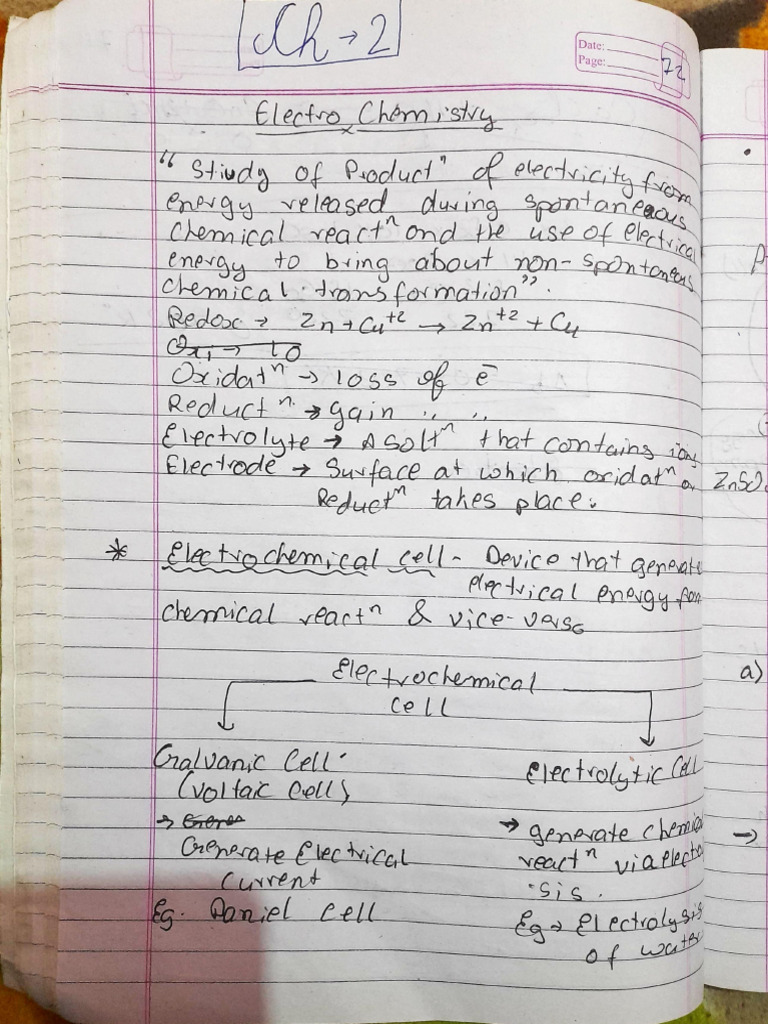 Ch → 2
Date:
Page: 72
Electro Chemistry
"Study of Productⁿ of electricity from
energy released during spontaneous
chemical reactⁿ and the use of electrical
energy to bring about non-spontaneous
chemical transformation".
Redox → Zn + Cu⁺² → Zn⁺² + Cu
Oxi → lo
Oxidatⁿ → loss of e⁻
Reductⁿ → gain " "
Electrolyte → A soltⁿ that contains ions
Electrode → Surface at which oxidatⁿ or
Reductⁿ takes place.
* Electrochemical cell - Device that generate
electrical energy from
chemical reactⁿ & vice-versa
Electrochemical
cell
Galvanic Cell
(Voltaic Cell)
→
Generate Electrical
current
Eg. Daniel Cell
Electrolytic Cell
→ generate chemical
reactⁿ via electro
sis.
Eg → Electrolysis
of water
ZnSO
a)
→